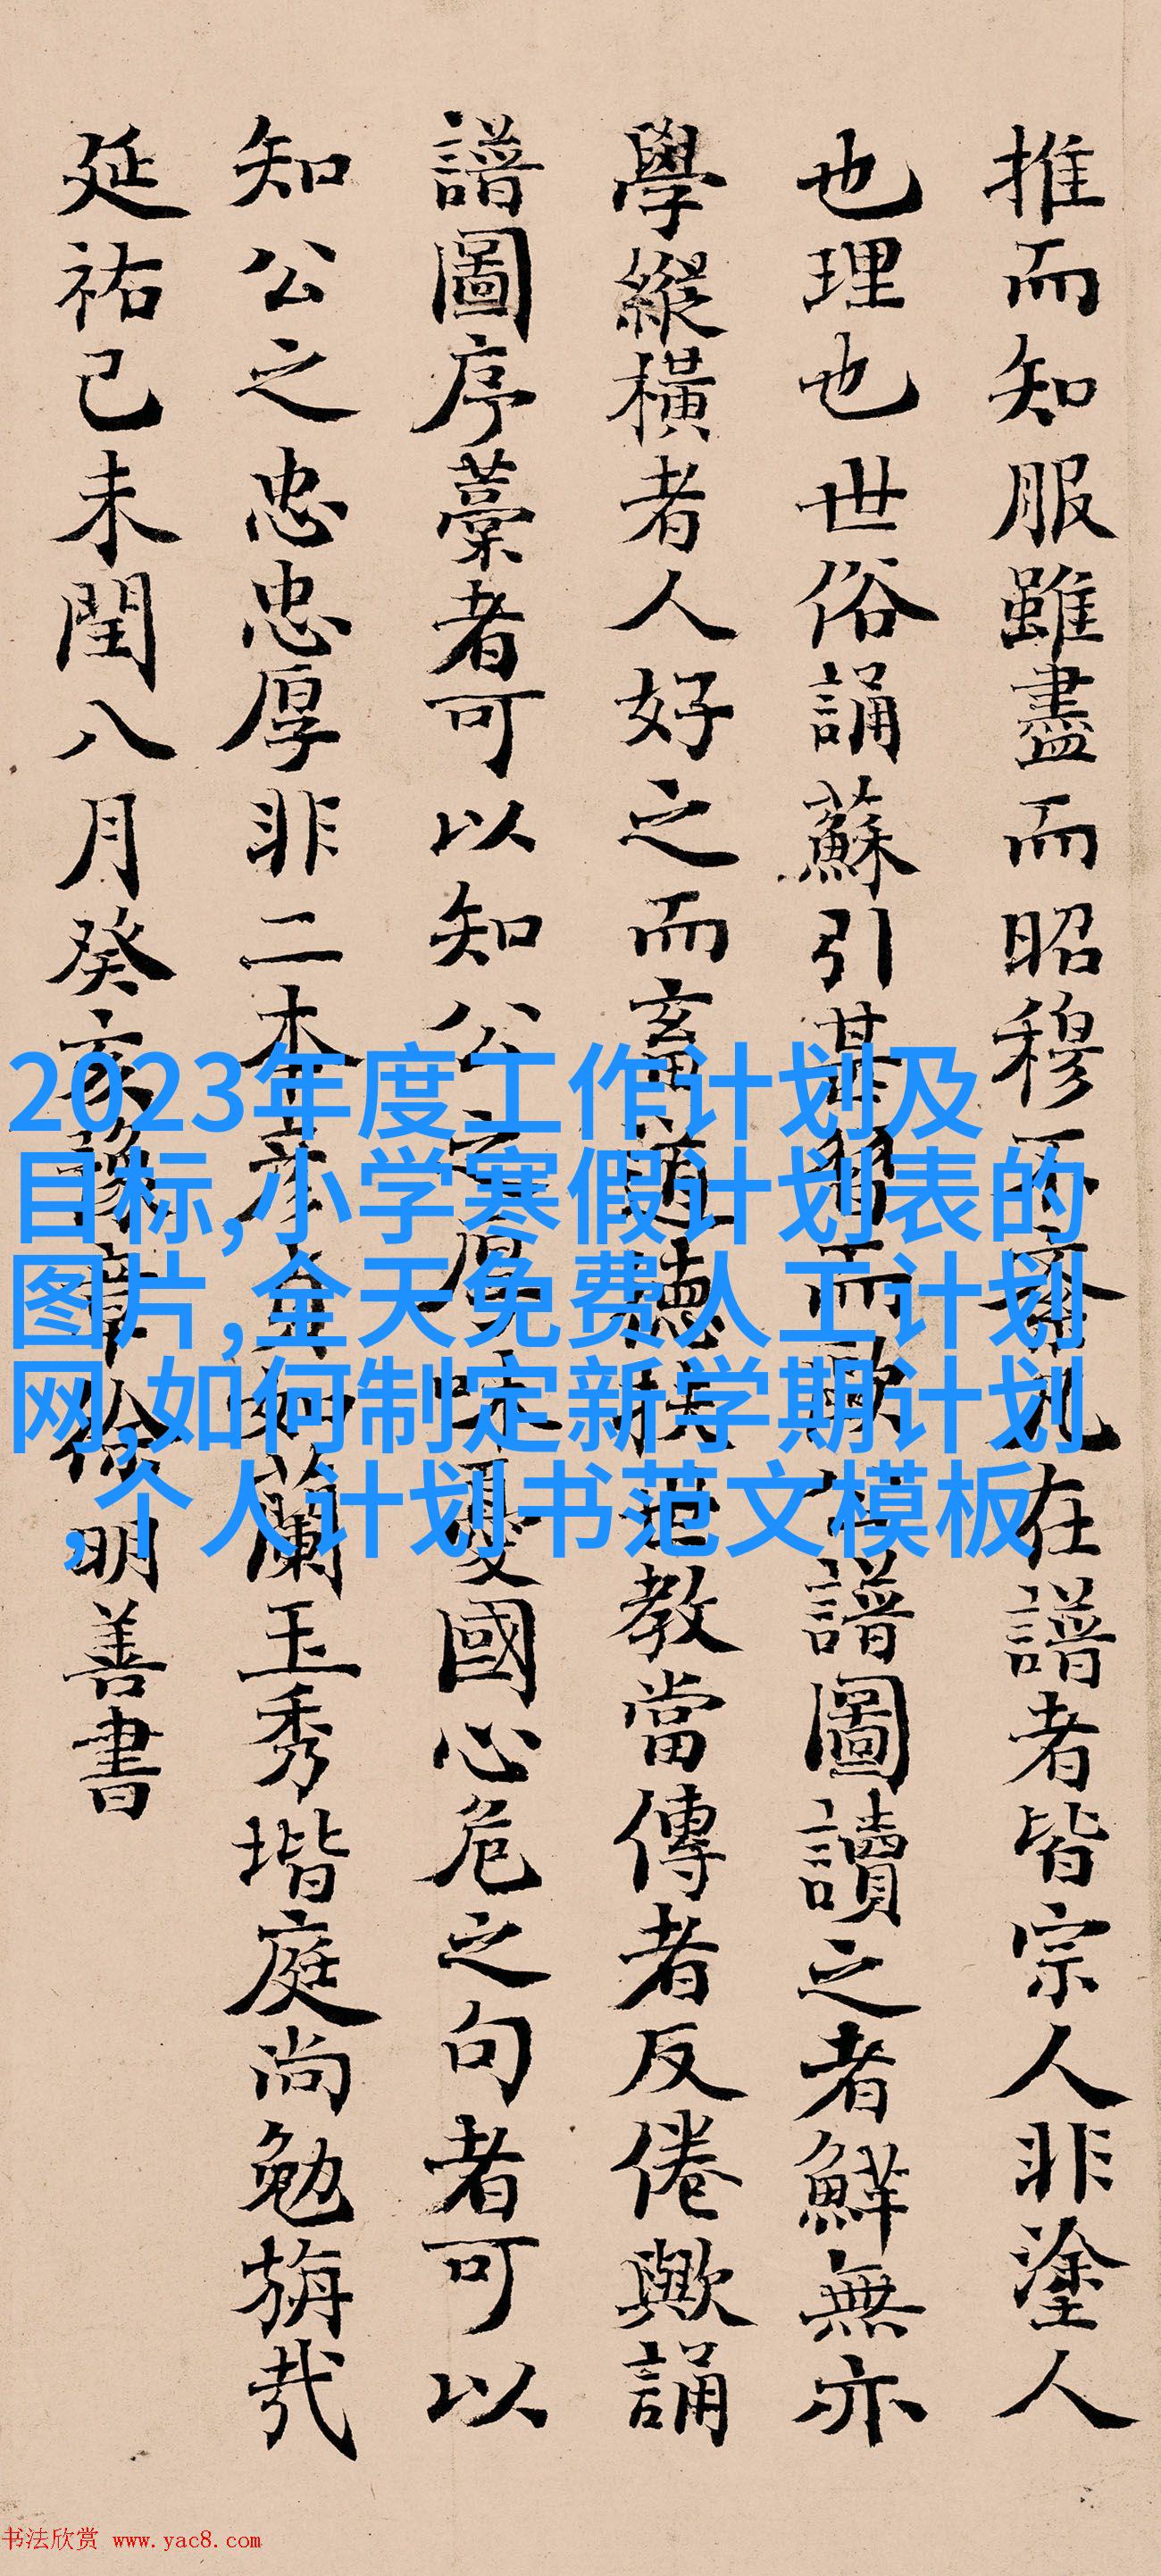 推而知服雖盡而昭穆不紊凡在譜者皆宗人非塗人
也理也世俗誦蘇引甚習而歐公譜圖讀之者鮮無亦
學縱橫者人好之而畜道德經世教當傳者反倦歟誦
譜圖序藁者可以知公之厚味憂國心危之句者可以
知公之忠忠厚非二本彥
蘭玉秀堦庭尚勉旃哉
延祐己未閏八月癸亥豫章徐明善書
2023年度工作计划及
目标,小学寒假计划表的
图片,全天免费人工计划
网,如何制定新学期计划
,个人计划书范文模板
书法欣赏 www.yac8.com